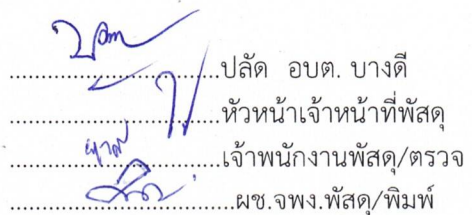 ....................ปลัด อบต. บางดี
....................หัวหน้าเจ้าหน้าที่พัสดุ
....................เจ้าพนักงานพัสดุ/ตรวจ
....................ผช.จพง.พัสดุ/พิมพ์